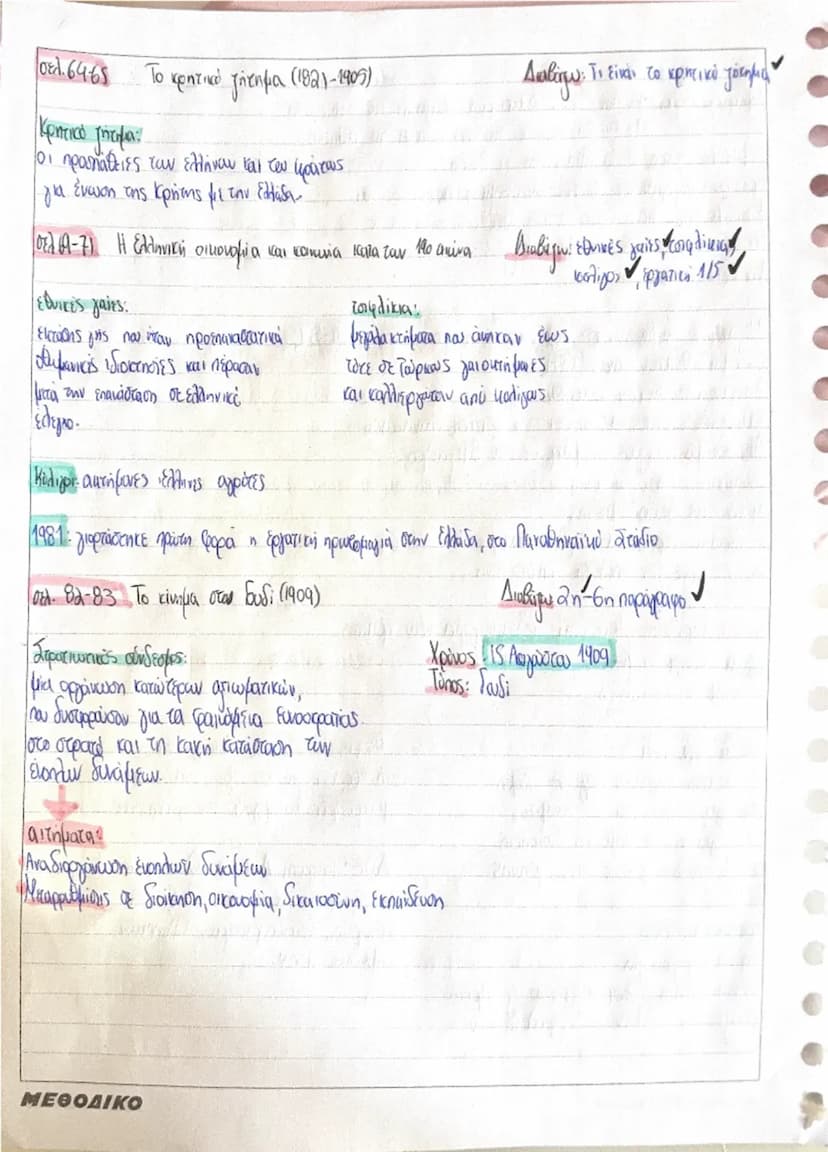 σελ.64-65 Το κρητικό ζήτημα (1821-1909) Διαβάζω: Τι είναι το κρητικό ζήτημα ✓
Κρητικό ζήτημα:
οι προσπάθειες των ελλήνων και του κράτους
για ένωση της Κρήτης με την Ελλάδα.
σελ 69-71 Η Ελληνική οικονομία και κοινωνία κατά τον 19ο αιώνα Διαβάζω: εθνικές γαίες ✓, τσιφλίκια ✓,
κολίγοι ✓, εργατική 1/5 ✓
εθνικές γαίες: τσιφλίκια:
εκτάσεις γης που ήταν προεπαναστατικά μεγάλα κτήματα που άνηκαν έως
οθωμανικές ιδιοκτησίες και πέρασαν τότε σε Τούρκους γαιοκτήμονες
μετά την επανάσταση σε ελληνικό και καλλιεργούταν από κολίγους
έλεγχο.
Κολίγοι: ακτήμονες έλληνες αγρότες
1981: γιορτάστηκε πρώτη φορά η εργατική πρωτομαγιά στην Ελλάδα, στο Παναθηναϊκό Στάδιο
σελ. 82-83 Το κίνημα στο Γουδί (1909) Διαβάζω 2η-6η παράγραφο ✓
Στρατιωτικός σύνδεσμος: Χρόνος: 15 Αυγούστου 1909
μια οργάνωση κατώτερων αξιωματικών, Τόπος: Γουδί
που δυσφορούσαν για τα φαινόμενα ευνοιοκρατίας
στο στρατό και τη κακή κατάσταση των
ένοπλων δυνάμεων.
αιτήματα:
Αναδιοργάνωση ένοπλων δυνάμεων
Μεταρρυθμίσεις σε διοίκηση, οικονομία, δικαιοσύνη, εκπαίδευση
ΜΕΘΟΔΙΚΟ